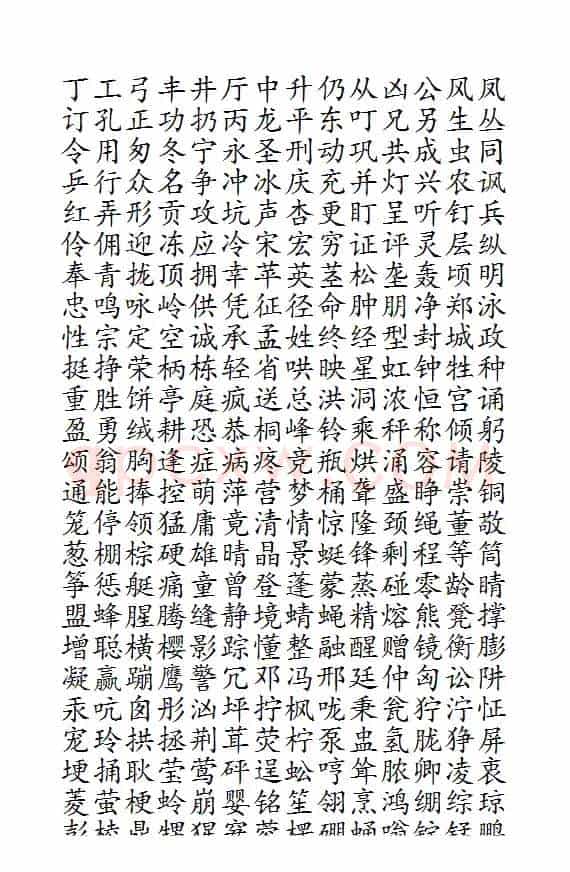 丁工弓丰井厅中升仍从凶公风凤
订孔正功扔丙龙平东叮兄另生丛
令用匆冬宁永圣刑动巩共成虫同
乒行众名争冲冰庆充并灯兴农讽
红弄形贡攻坑声杏更盯呈听钉兵
伶佣迎冻应冷宋宏穷证评灵层纵
奉青拢顶拥幸苹英茎松垄轰顷明
忠鸣咏岭供凭征径命肿朋净郑泳
性宗定空诚承孟姓终经型封城政
挺挣荣柄栋轻省哄映星虹钟牲种
重胜饼亭庭疯送总洪洞浓恒宫诵
盈勇绒耕恐恭桐峰铃乘秤称倾躬
颂翁胸逢症病疼竞瓶烘涌容请陵
通能捧控萌萍营梦桶聋盛睁崇铜
笼停领猛庸竟清情惊隆颈绳董敬
葱棚棕硬雄晴晶景蜓锋剩程等筒
筝惩艇痛童曾登蓬蒙蒸碰零龄睛
盟蜂腥腾缝静境蜻蝇精熔熊凳撑
增聪横樱影踪懂整融醒赠镜衡膨
凝赢蹦鹰警冗邓冯邢廷仲匈讼阱
汞吭囱彤汹坪拧枫咙秉瓮狞泞怔
宠玲拱拯荆茸荧柠泵盅氢胧狰屏
埂捅耿莹莺砰逞蚣哼耸脓卿凌衷
菱萤梗蛉崩婴铭笙翎烹鸿绷综琼